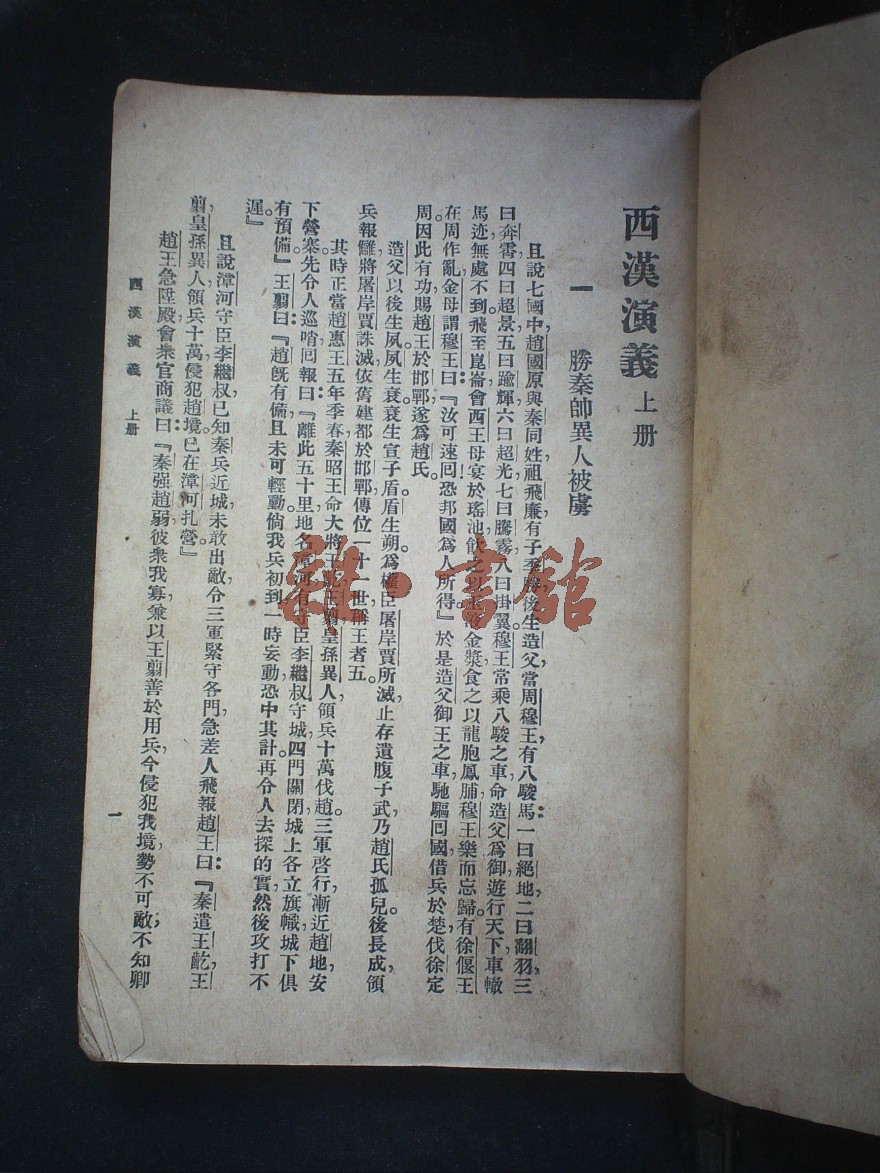 西漢演義 上册
一 勝秦師異人被虜
且說七國中趙國原與秦同姓祖飛廉有子季勝後生造父當周穆王有八駿馬：一曰絕地二曰翻羽，三
曰奔霄四曰超景五曰踰輝六曰超光七曰騰霧八曰掛翼穆王常乘八駿之車命造父爲御遊行天下車轍
馬迹無處不到飛至崑崙會西王母宴於瑤池飲之以金漿食之以龍胞鳳脯穆王樂而忘歸。有徐偃王
在周作亂金母謂穆王曰：『汝可速回！恐邦國爲人所得』於是造父御王之車馳驅回國借兵於楚伐徐定
周。因此有功賜趙王於邯鄲遂爲趙氏。
造父以後生夙夙生衰衰生宣子盾。盾生朔。爲權臣屠岸賈所滅止存遺腹子武乃趙氏孤兒。後長成，領
兵報讎將屠岸賈誅滅依舊建都於邯鄲傳位一十一世稱王者五。
其時正當趙惠王五年季春秦昭王命大將王齕王翦皇孫異人領兵十萬伐趙。三軍啓行，漸近趙地，安
下營寨。先令人巡哨回報曰：『離此五十里地名漳河有守臣李繼叔守城四門關閉城上各立旗幟，城下俱
有預備。』王翦曰：『趙旣有備，且未可輕動。倘我兵初到一時妄動，恐中其計。再令人去探的實，然後攻打不
遲。』
且說漳河守臣李繼叔，已知秦兵近城，未敢出敵，令三軍緊守各門，急差人飛報趙王曰：『秦遣王齕，王
翦，皇孫異人，領兵十萬，侵犯趙境，已在漳河扎營。』
趙王急陞殿，會衆官商議曰：『秦强趙弱，彼衆我寡，兼以王翦善於用兵，今侵犯我境，勢不可敵，不知卿
西漢演義 上册
一
雜·書館